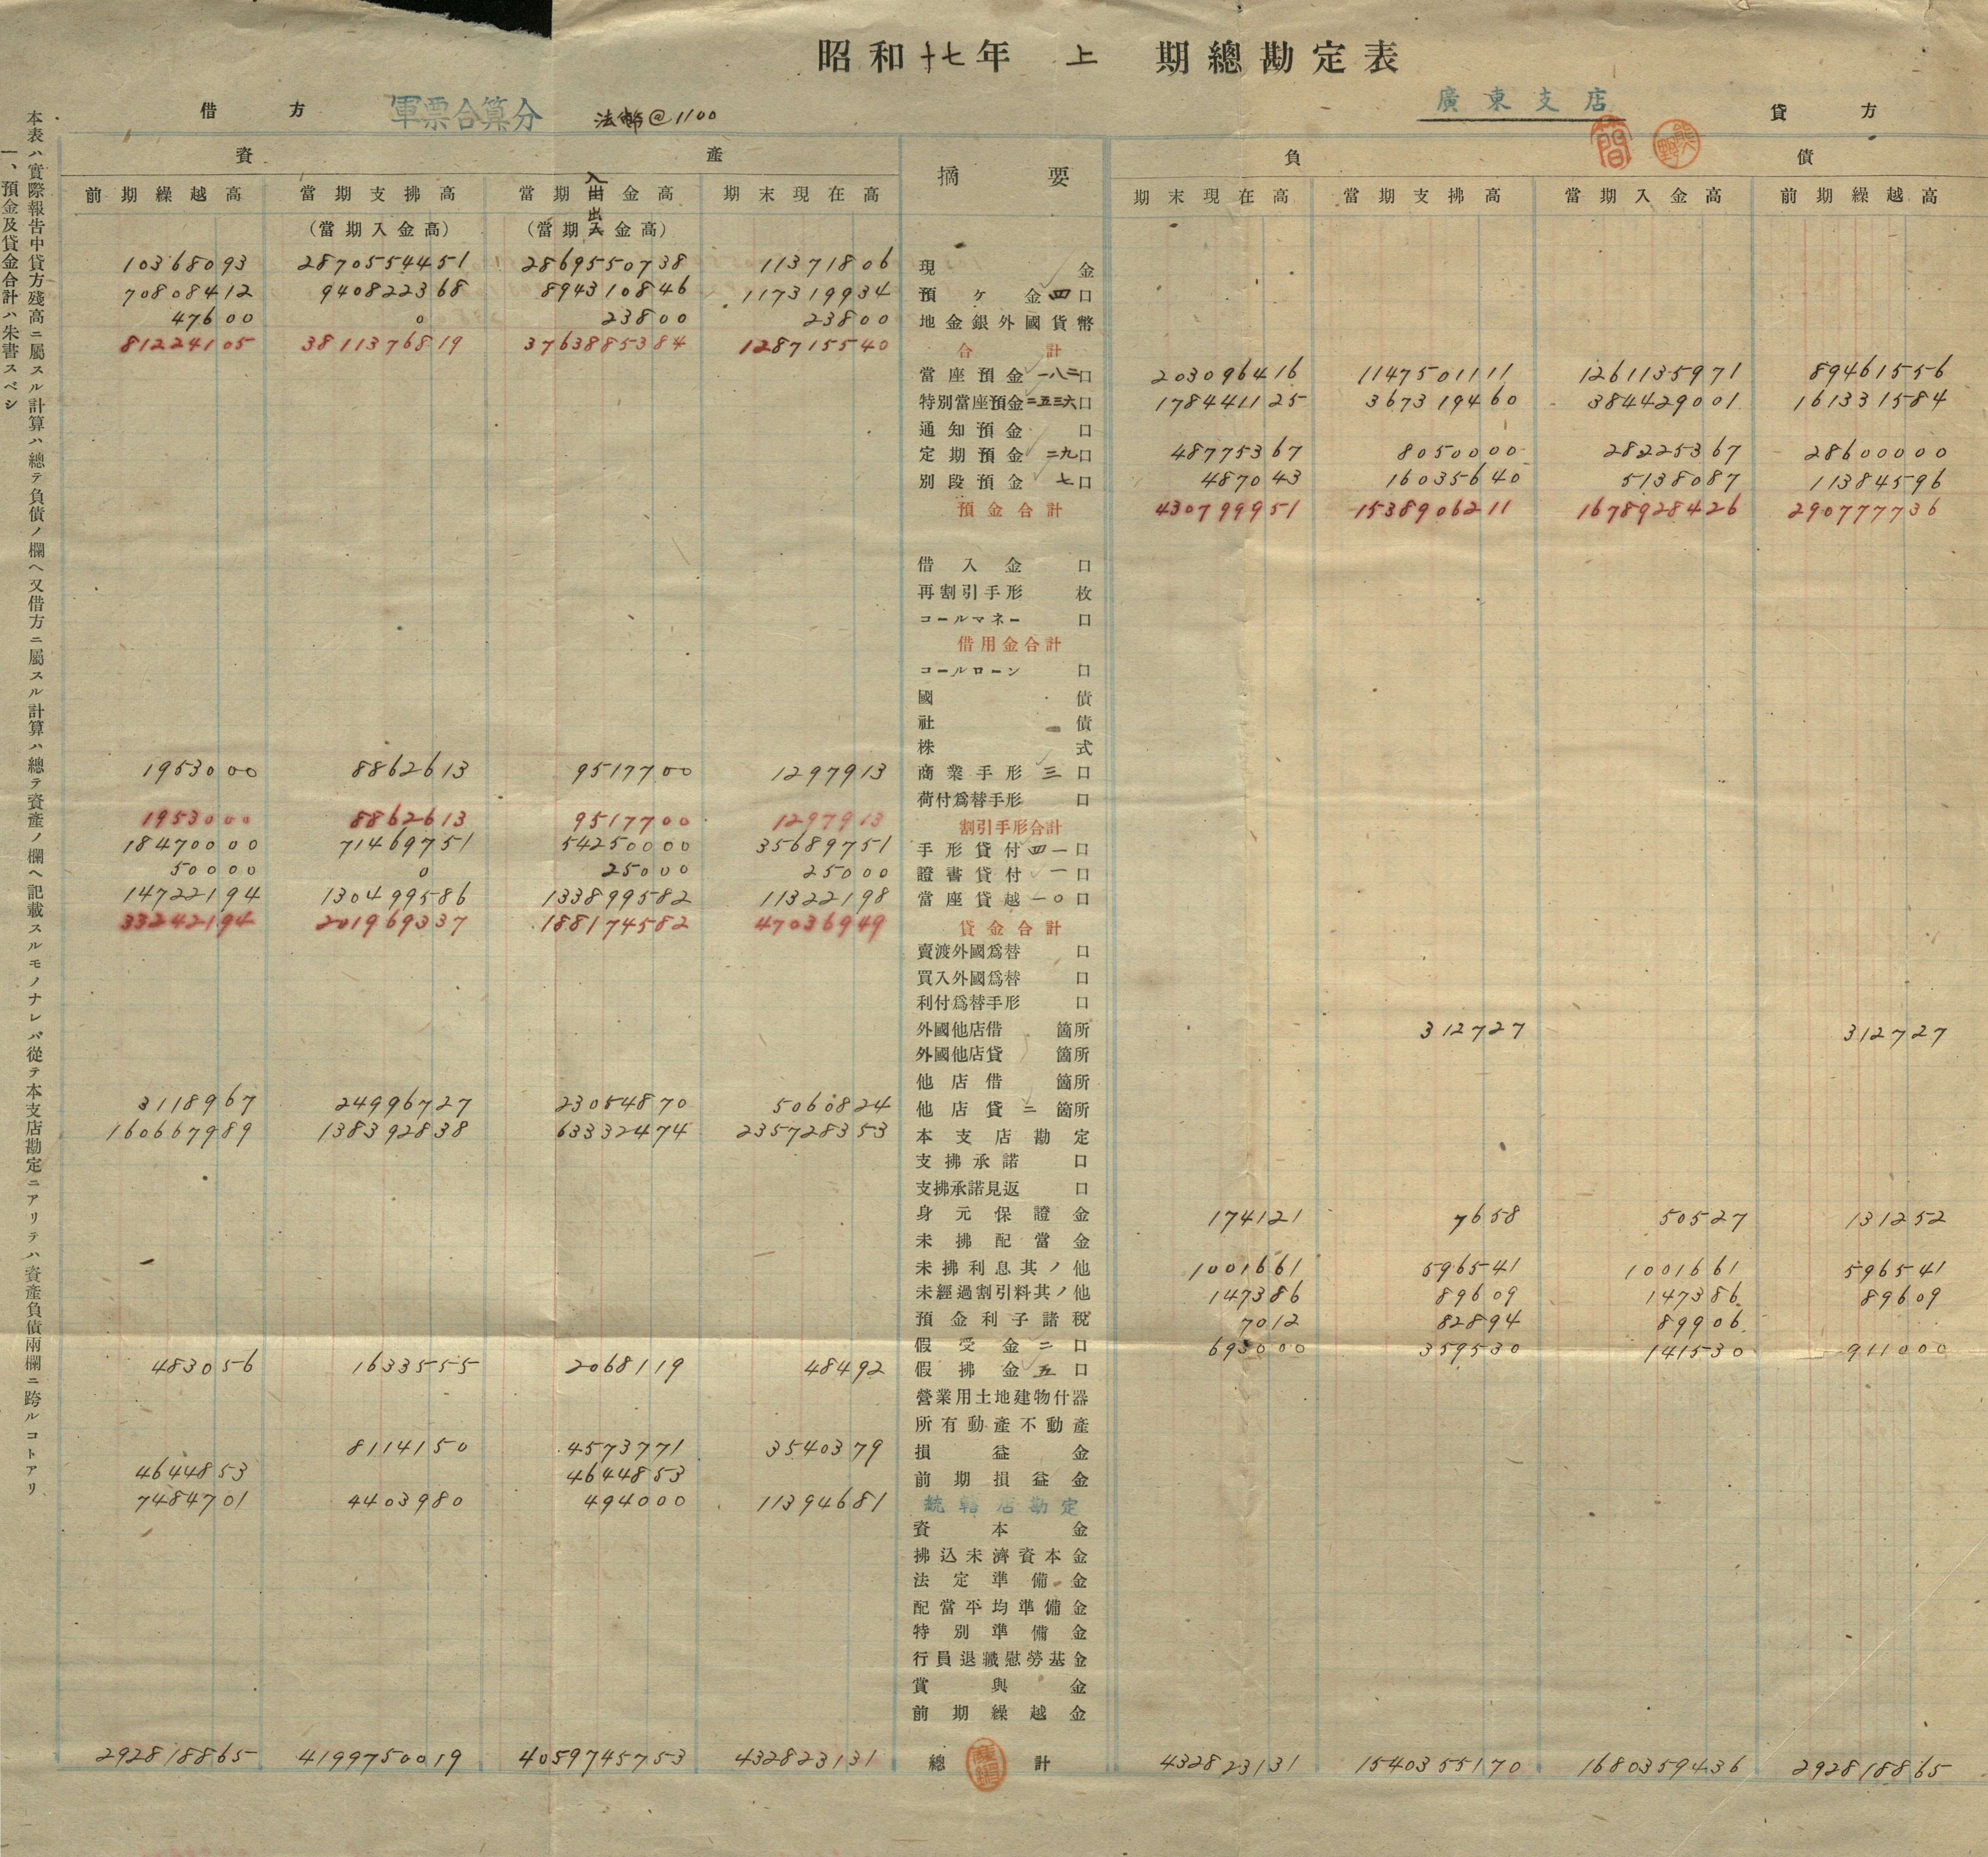 昭和十七年 上 期總勘定表
借方 軍票合算分 法幣@1100 廣東支店 貸方
資產 摘要 負債
前期繰越高 當期支拂高 當期入金高 期末現在高 期末現在高 當期支拂高 當期入金高 前期繰越高
(當期入金高) (當期出金高)
10368093 2870554451 2869550738 11371806 現金
70808412 940822368 894310846 117319934 預ケ金 四口
47600 0 23800 23800 地金銀外國貨幣
81224105 3811376819 3763885384 128715540 合計
當座預金 一八二口 203096416 1147501111 1261135971 89461556
特別當座預金 二五三六口 178441125 367319460 384429001 161331584
通知預金 口
定期預金 二九口 48775367 8050000 28225367 28600000
別段預金 七口 487043 16035640 5138087 11384596
預金合計 430799951 1538906211 1678928426 290777736
借入金 口
再割引手形 枚
コールマネー 口
借用金合計
コールローン 口
國債
社債
株式
1953000 8862613 9517700 1297913 商業手形 三口
荷付爲替手形 口
1953000 8862613 9517700 1297913 割引手形合計
18470000 71469751 54250000 35689751 手形貸付 四一口
50000 0 25000 25000 證書貸付 一口
14722194 130499586 133899582 11322198 當座貸越 一〇口
33242194 201969337 188174582 47036949 貸金合計
賣渡外國爲替 口
買入外國爲替 口
利付爲替手形 口
外國他店借 箇所 312727 312727
外國他店貸 箇所
他店借 箇所
3118967 24996727 23054870 5060824 他店貸 二箇所
160667989 138392838 63332474 235728353 本支店勘定
支拂承諾 口
支拂承諾見返 口
身元保證金 174121 7658 50527 131252
未拂配當金
未拂利息其ノ他 1001661 596541 1001661 596541
未經過割引料其ノ他 147386 89609 147386 89609
預金利子諸稅 7012 82894 89906
假受金 二口 693000 359530 141530 911000
483056 1633555 2068119 48492 假拂金 五口
營業用土地建物什器
所有動產不動產
8114150 4573771 3540379 損益金
4644853 4644853 前期損益金
7484701 4403980 494000 11394681 統轄店勘定
資本金
拂込未濟資本金
法定準備金
配當平均準備金
特別準備金
行員退職慰勞基金
賞與金
前期繰越金
292818865 4199750019 4059745753 432823131 總計 432823131 1540355170 1680359436 292818865
本表ハ實際報告中貸方殘高ニ屬スル計算ハ總テ負債ノ欄ヘ又借方ニ屬スル計算ハ總テ資產ノ欄ヘ記載スルモノナレバ從テ本支店勘定ニアリテハ資產負債兩欄ニ跨ルコトアリ
一、預金及貸金合計ハ朱書スベシ